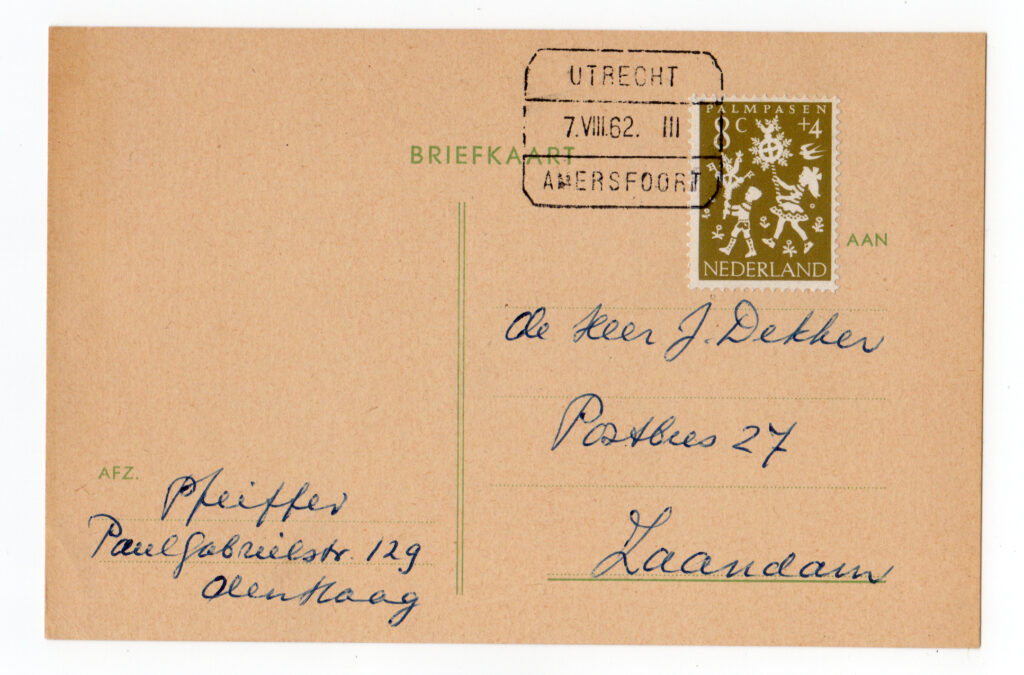 UTRECHT
7.VIII.62. III
AMERSFOORT
BRIEFKAART
PALMPASEN
8 C +4
NEDERLAND
AAN
de Heer J. Dekker
Postbus 27
Zaandam
AFZ.
Pfeiffer
Paul Gabrielstr. 129
den Haag